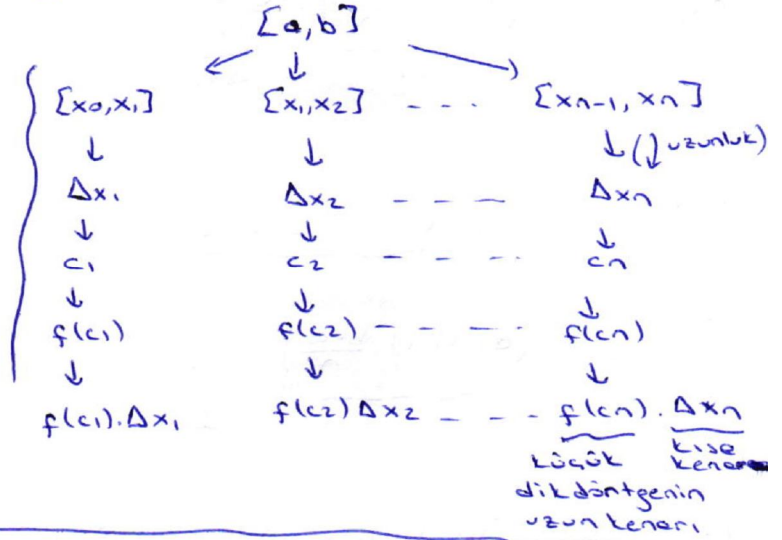 [a,b]
[x0,x1] [x1,x2] - - - [xn-1, xn]
(uzunluk)
Δx1 Δx2 - - - Δxn
c1 c2 - - - cn
f(c1) f(c2) - - - f(cn)
f(c1).Δx1 f(c2)Δx2 - - - f(cn).Δxn
küçük kısa
dikdörtgenin kenarı
uzun kenarı